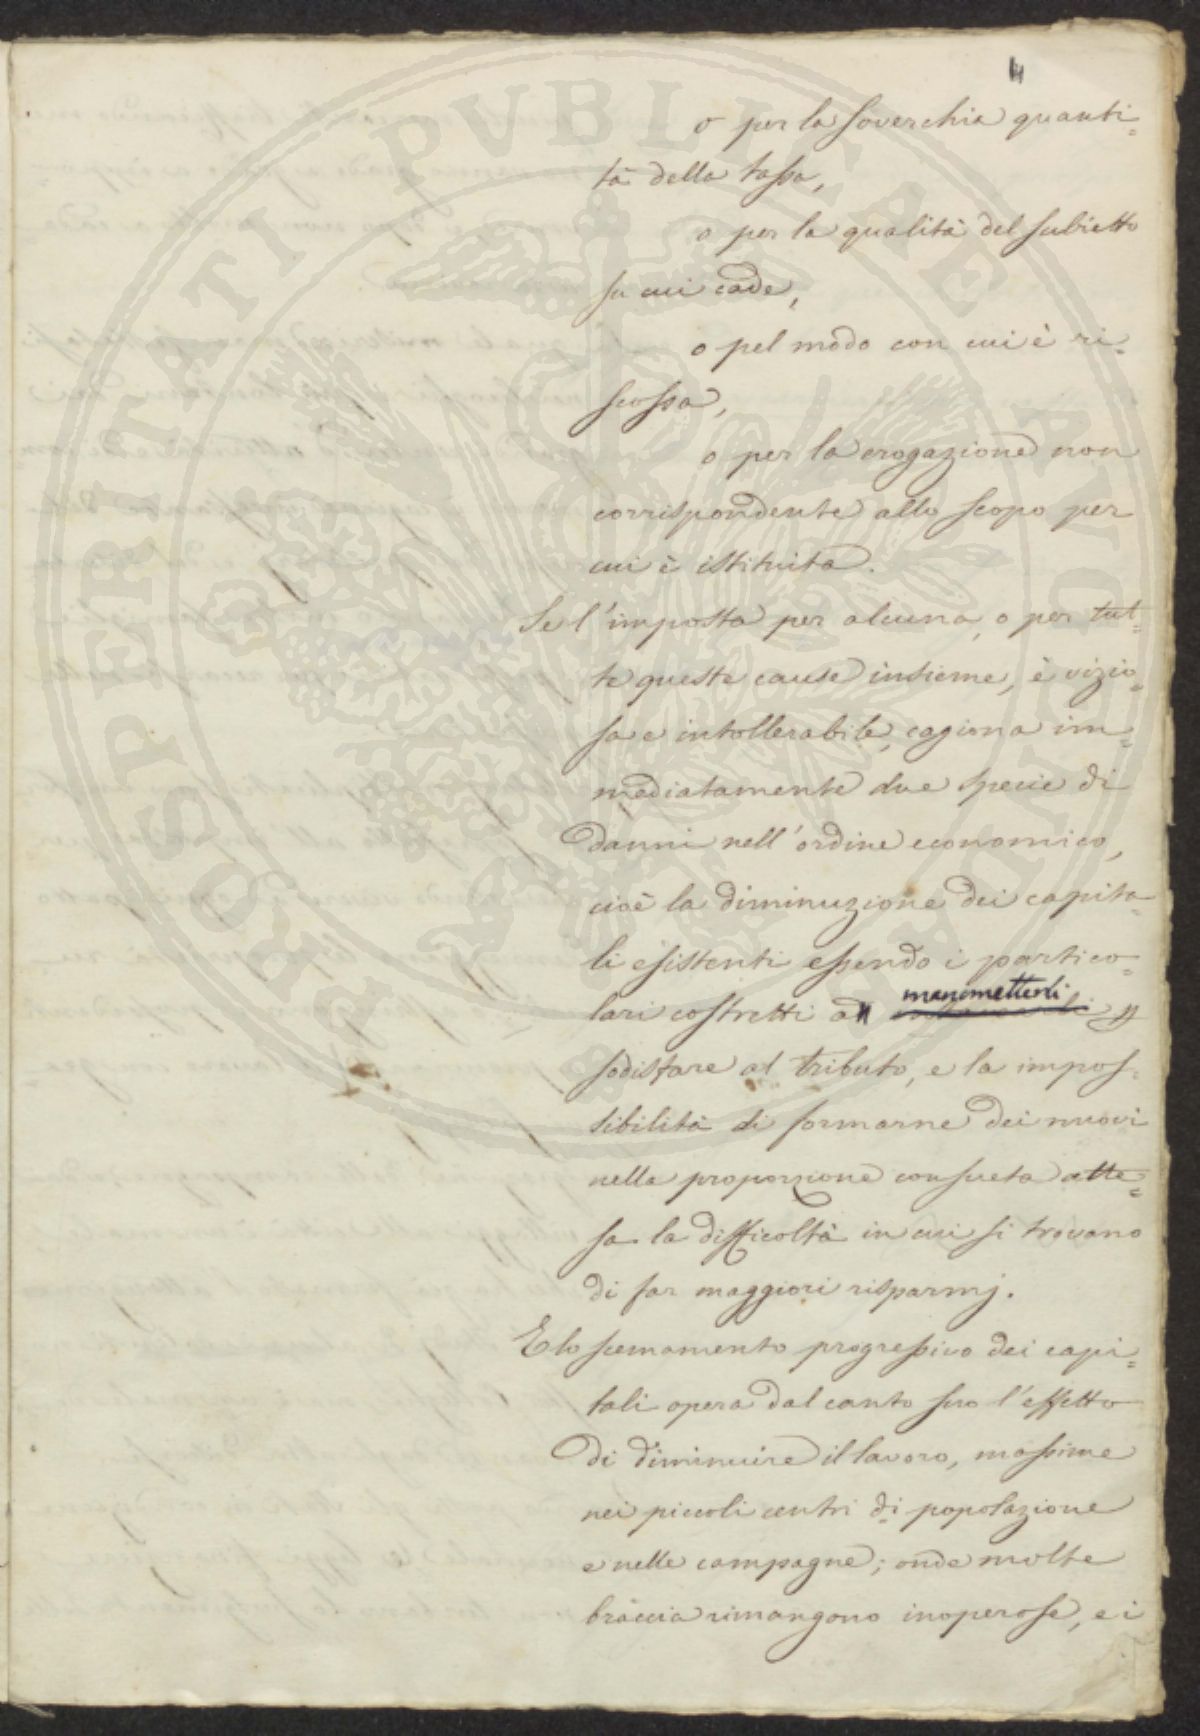 4
o per la soverchia quanti=
tà della tassa,
o per la qualità del subietto
su cui cade,
o pel modo con cui è ri=
scossa,
o per la erogazione non
corrispondente allo scopo per
cui è istituita.
Se l'imposta per alcuna, o per tut=
te queste cause insieme, è vizio=
sa e intollerabile, cagiona im=
mediatamente due specie di
danni nell'ordine economico,
cioè la diminuzione dei capita=
li esistenti essendo i partico=
manometterli
lari costretti a
sodisfare al tributo, e la impos=
sibilità di formarne dei nuovi
nella proporzione consueta atte=
sa la difficoltà in cui si trovano
di far maggiori risparmj.
E lo scemamento progressivo dei capi=
tali opera dal canto suo l'effetto
di diminuire il lavoro, massime
nei piccoli centri di popolazione
e nelle campagne; onde molte
braccia rimangono inoperose, e i
PROSPERITATI PVBLICAE AVGENDAE